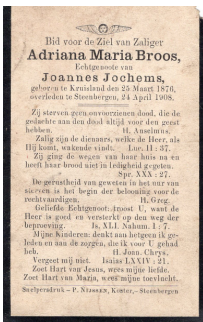 Bid voor de Ziel van Zaliger
Adriana Maria Broos,
Echtgenoote van
Joannes Jochems,
geboren te Kruisland den 25 Maart 1876,
overleden te Steenbergen, 24 April 1908.
Zij sterven geen onvoorzienen dood, die de
gedachte aan den dood altijd voor den geest
hebben. H. Anselmus.
Zalig zijn de dienaars, welke de Heer, als
Hij komt, wakende vindt. Luc. II : 37.
Zij ging de wegen van haar huis na en
heeft haar brood niet in ledigheid gegeten.
Spr. XXX : 27.
De gerustheid van geweten in het uur van
sterven is het begin der belooning voor de
rechtvaardigen. H. Greg.
Geliefde Echtgenoot: troost U, want de
Heer is goed en versterkt op den weg der
beproeving. Is. XLI. Nahum. 1 : 7.
Mijne Kinderen: denkt aan hetgeen ik ge-
leden en aan de zorgen, die ik voor U gehad
heb. H. Joan. Chrys.
Vergeet mij niet. Isaias LXXIV : 21.
Zoet Hart van Jesus, wees mijne liefde.
Zoet Hart van Maria, wees mijne toevlucht.
Snelpersdruk - P. Nijssen, Koster,- Steenbergen